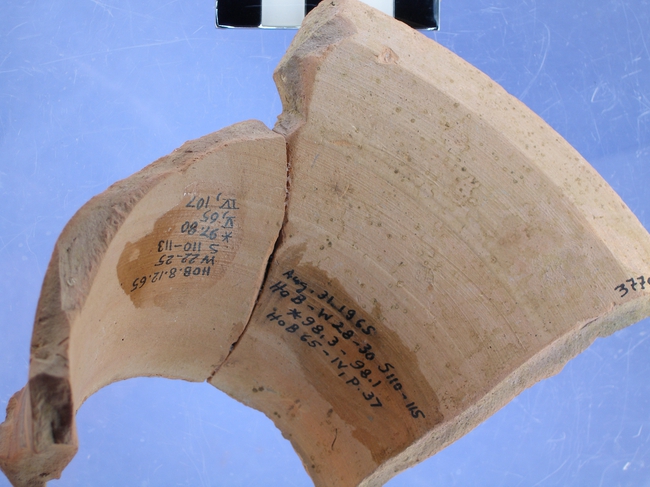 HOB.8.12.65
W 22-25
S 110-113
*97.80
V, 65
IV, 107
Aug. 31, 1965
HOB - W 28-30 S 110-115
*98.3 - 98.1
HOB 65-IV, P. 37